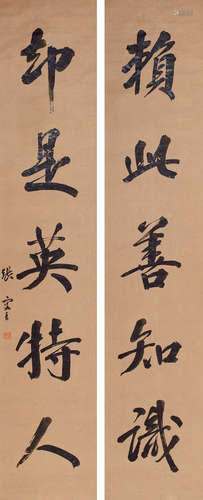 賴此善知識
却是英特人
張